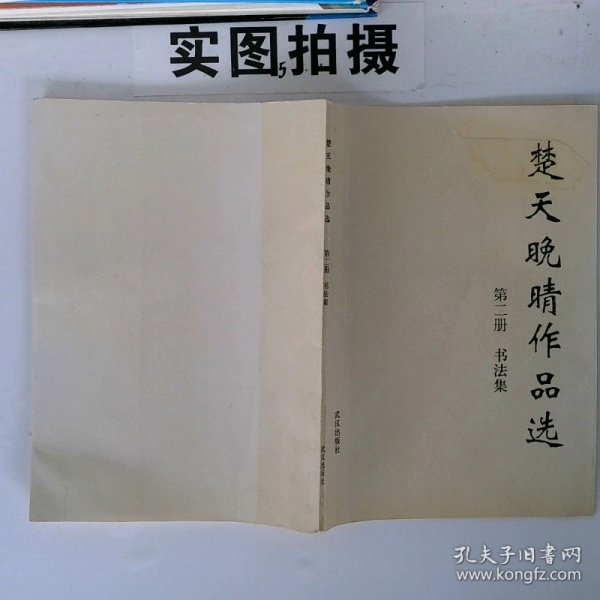 实图拍摄
5
楚天晚晴作品选
第二册 书法集
武汉出版社
楚天晚晴作品选 第二册 书法集 武汉出版社
孔夫子旧书网
www.kongfz.com